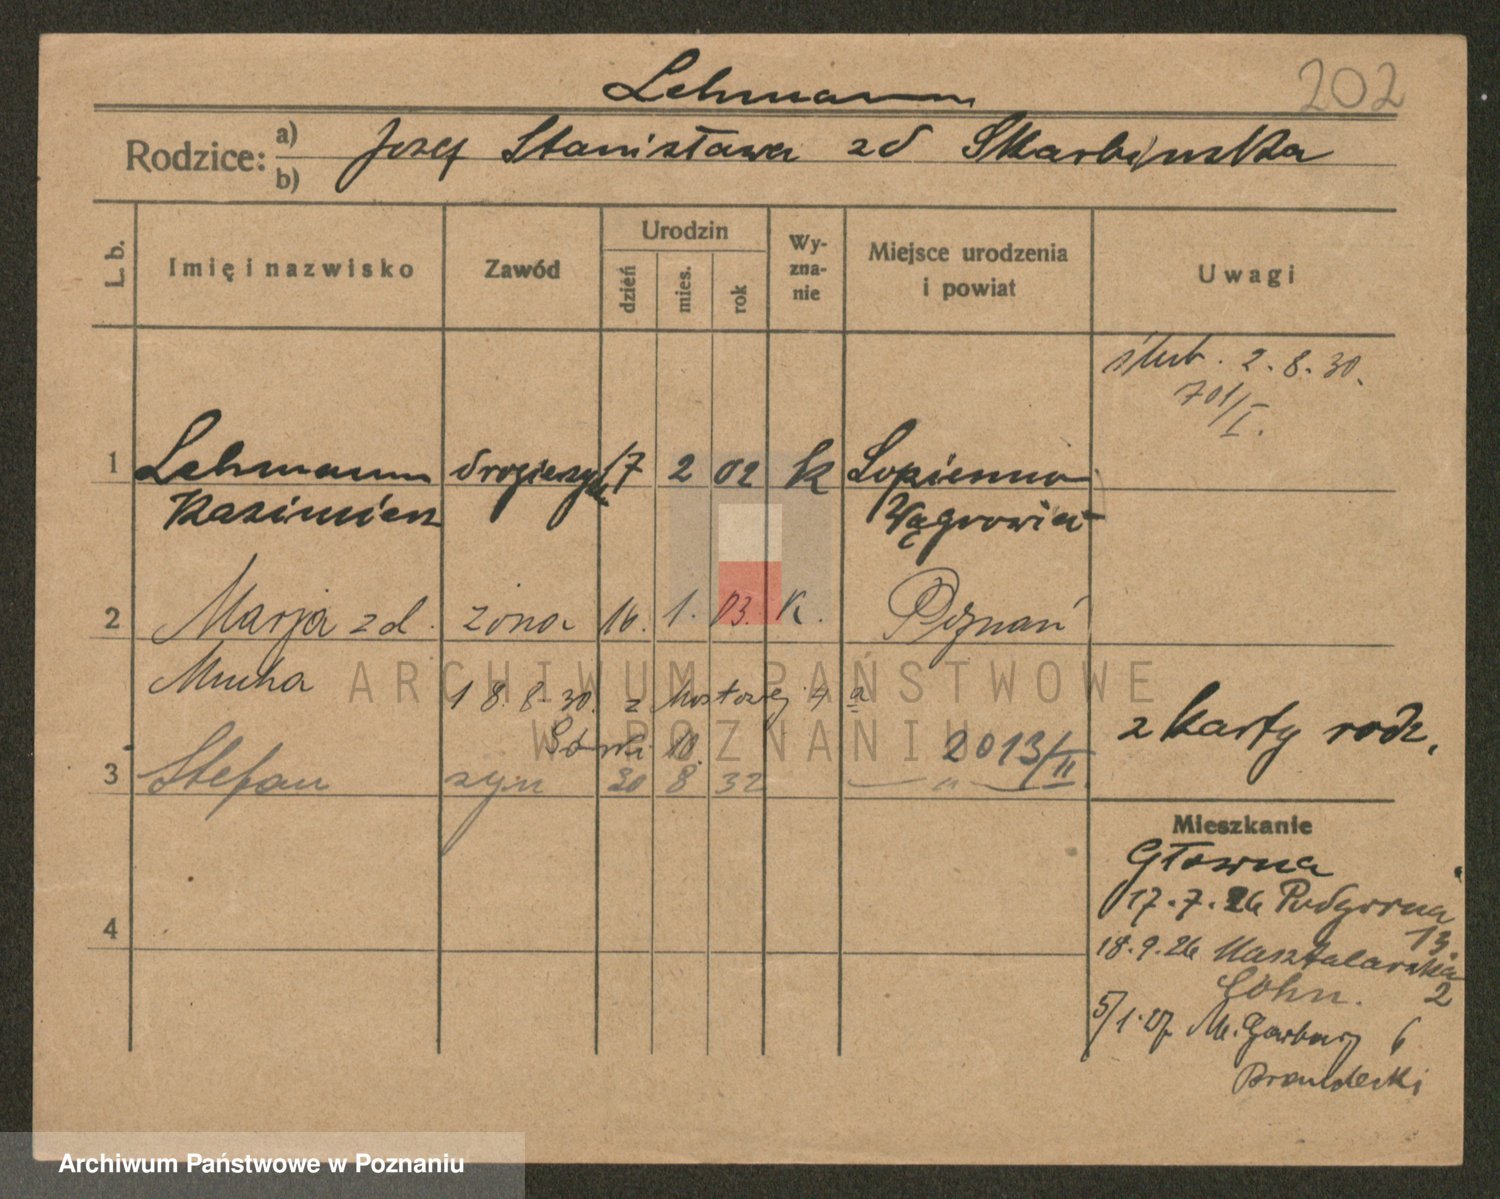 Lehmann
202
Rodzice: a) b) Józef Stanisława zd Skarbińska
L. b.
Imię i nazwisko
Zawód
Urodzin
dzień
mies.
rok
Wy-
zna-
nie
Miejsce urodzenia
i powiat
Uwagi
ślub. 2.8.30.
701/I.
1 Lehmann drogierzysta 17 2 02 k Łopienno
Kazimierz Wągrowiec
2 Marja zd. żona 16. 1. 03. k. Poznań
Mucha
18.8.30. z Mostowej 4a
10. 2013/II
z karty rodz.
3 Stefan syn 30 8 32 — " —
Mieszkanie
Główna
17.7.26 Podgórna
13
18.9.26 Masztalarska
2
5/1.27 M. Garbary 6
4
ARCHIWUM PAŃSTWOWE
W POZNANIU
Archiwum Państwowe w Poznaniu